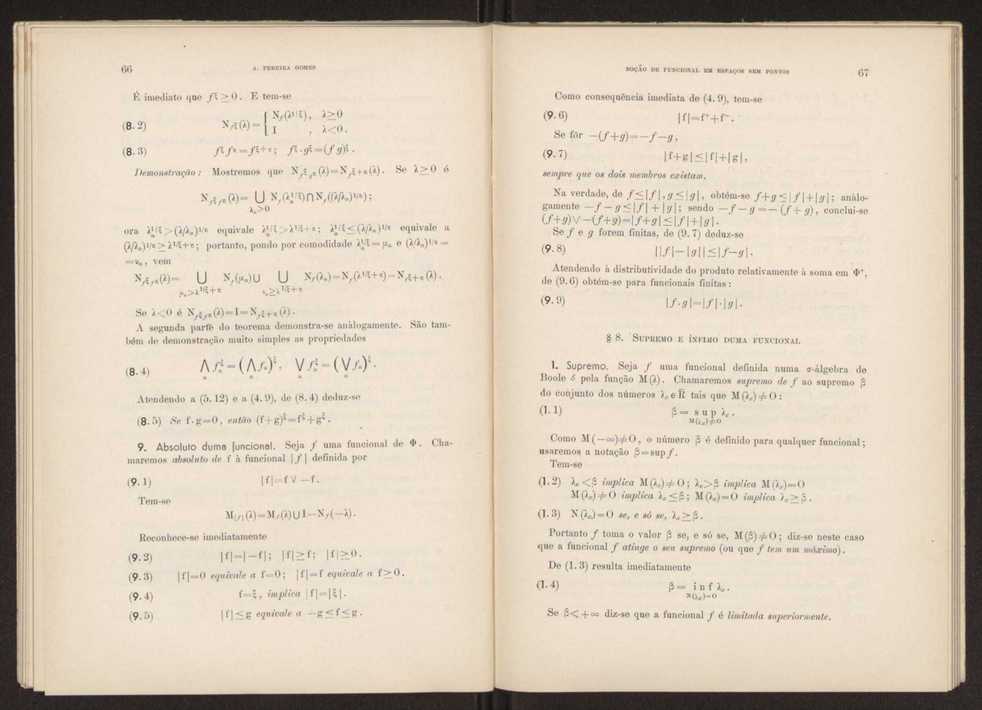 66 A. PEREIRA GOMES
É imediato que f^ξ ≥ 0. E tem-se
(8.2) N_{f^ξ}(λ) = { N_f(λ^{1/ξ}), λ≥0
I , λ<0.
(8.3) f^ξ f^π = f^{ξ+π}; f^ξ · g^ξ = (f g)^ξ.
Demonstração: Mostremos que N_{f^ξ f^π}(λ) = N_{f^{ξ+π}}(λ). Se λ≥0 é
N_{f^ξ f^π}(λ) = ⋃_{λ_n>0} N_f(λ_n^{1/ξ}) ⋂ N_f((λ/λ_n)^{1/π});
ora λ_n^{1/ξ} > (λ/λ_n)^{1/π} equivale λ_n^{1/ξ} > λ^{1/ξ+π}; λ_n^{1/ξ} ≤ (λ/λ_n)^{1/π} equivale a
(λ/λ_n)^{1/π} ≥ λ^{1/ξ+π}; portanto, pondo por comodidade λ_n^{1/ξ} = μ_n e (λ/λ_n)^{1/π} =
= ν_n, vem
N_{f^ξ f^π}(λ) = ⋃_{μ_n>λ^{1/ξ+π}} N_f(μ_n) ⋃ ⋃_{ν_n≥λ^{1/ξ+π}} N_f(λ_n) = N_f(λ^{1/ξ+π}) = N_{f^{ξ+π}}(λ).
Se λ<0 é N_{f^ξ f^π}(λ) = I = N_{f^{ξ+π}}(λ).
A segunda parte do teorema demonstra-se anàlogamente. São tam-
bém de demonstração muito simples as propriedades
(8.4) ⋀_n f_n^ξ = (⋀_n f_n)^ξ, ⋁_n f_n^ξ = (⋁_n f_n)^ξ.
Atendendo a (5.12) e a (4.9), de (8.4) deduz-se
(8.5) Se f·g=0, então (f+g)^ξ = f^ξ + g^ξ.
9. Absoluto duma funcional. Seja f uma funcional de Φ. Cha-
maremos absoluto de f à funcional |f| definida por
(9.1) |f| = f ∨ −f.
Tem-se
M_{|f|}(λ) = M_f(λ) ⋃ I − N_f(−λ).
Reconhece-se imediatamente
(9.2) |f| = |−f|; |f| ≥ f; |f| ≥ 0.
(9.3) |f|=0 equivale a f=0; |f|=f equivale a f≥0.
(9.4) f=ξ, implica |f|=|ξ|.
(9.5) |f|≤g equivale a −g≤f≤g.
NOÇÃO DE FUNCIONAL EM ESPAÇOS SEM PONTOS 67
Como consequência imediata de (4.9), tem-se
(9.6) |f| = f⁺ + f⁻.
Se fôr −(f+g) = −f−g,
(9.7) |f+g| ≤ |f|+|g|,
sempre que os dois membros existam.
Na verdade, de f≤|f|, g≤|g|, obtém-se f+g≤|f|+|g|; anàlo-
gamente −f−g≤|f|+|g|; sendo −f−g=−(f+g), conclui-se
(f+g)∨−(f+g)=|f+g|≤|f|+|g|.
Se f e g forem finitas, de (9.7) deduz-se
(9.8) ||f|−|g|| ≤ |f−g|.
Atendendo à distributividade do produto relativamente à soma em Φ⁺,
de (9.6) obtém-se para funcionais finitas:
(9.9) |f·g| = |f|·|g|.
§ 8. SUPREMO E ÍNFIMO DUMA FUNCIONAL
1. Supremo. Seja f uma funcional definida numa σ-álgebra de
Boole δ pela função M(λ). Chamaremos supremo de f ao supremo β
do conjunto dos números λ_c ∈ R̄ tais que M(λ_c) ≠ O:
(1.1) β = sup λ_c.
M(λ_c)≠O
Como M(−∞)≠O, o número β é definido para qualquer funcional;
usaremos a notação β = sup f.
Tem-se
(1.2) λ_c<β implica M(λ_c)≠O; λ_c>β implica M(λ_c)=O
M(λ_c)≠O implica λ_c≤β; M(λ_c)=O implica λ_c≥β.
(1.3) N(λ_c)=O se, e só se, λ_c≥β.
Portanto f toma o valor β se, e só se, M(β)≠O; diz-se neste caso
que a funcional f atinge o seu supremo (ou que f tem um máximo).
De (1.3) resulta imediatamente
(1.4) β = inf λ_c.
N(λ_c)=O
Se β<+∞ diz-se que a funcional f é limitada superiormente.